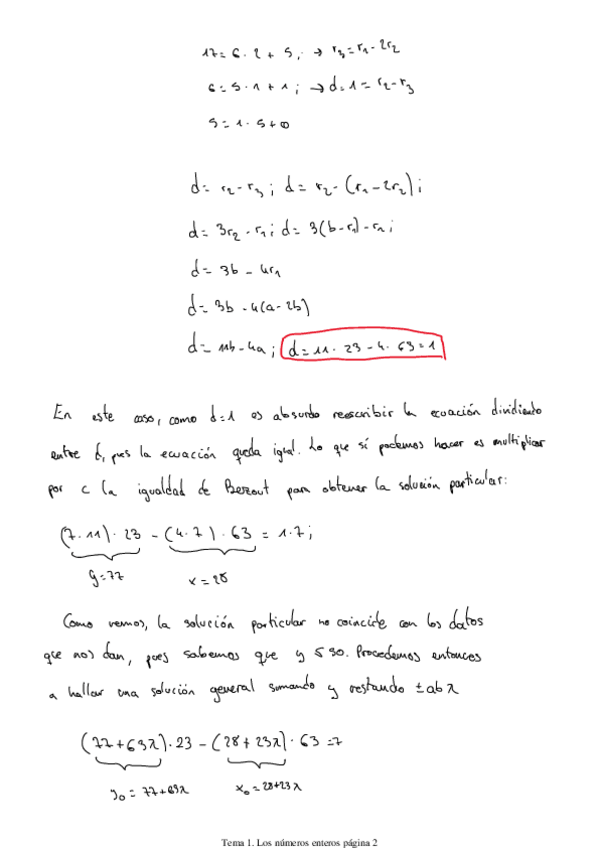 17 = 6 · 2 + 5 ; → r₃ = r₁ - 2r₂
6 = 5 · 1 + 1 ; → d = 1 = r₂ - r₃
5 = 1 · 5 + 0
d = r₂ - r₃ ; d = r₂ - (r₁ - 2r₂) ;
d = 3r₂ - r₁ ; d = 3(b - r₁) - r₁ ;
d = 3b - 4r₁
d = 3b - 4(a - 2b)
d = 11b - 4a ; d = 11 · 23 - 4 · 63 = 1
En este caso, como d=1 es absurdo reescribir la ecuación dividiento
entre d, pues la ecuacción queda igual. Lo que sí podemos hacer es multiplicar
por c la igualdad de Bezout para obtener la solución particular:
(7 · 11) · 23 - (4 · 7) · 63 = 1 · 7 ;
y = 77 x = 28
Como vemos, la solución particular no coincide con los datos
que nos dan, pues sabemos que y ≤ 30. Procedemos entonces
a hallar una solución general sumando y restando ± ab λ
(77 + 63λ) · 23 - (28 + 23λ) · 63 = 7
y₀ = 77 + 63λ x₀ = 28 + 23λ
Tema 1. Los números enteros página 2